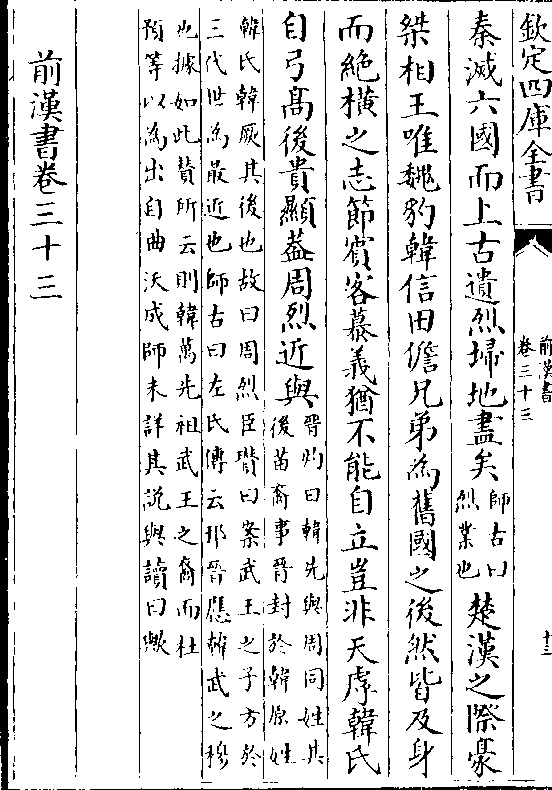 欽定四庫全書
前漢書
卷三十三
十三
秦滅六國而上古遺烈埽地盡矣師古曰
烈業也楚漢之際豪
桀相王唯魏豹韓信田儋兄弟為舊國之後然皆及身
而絶橫之志節賔客慕義猶不能自立豈非天虖韓氏
自弓髙後貴顯葢周烈近與晉灼曰韓先與周同姓其
後苗裔事晉封於韓原姓
韓氏韓厥其後也故曰周烈臣瓚曰案武王之子方於
三代世為最近也師古曰左氏傳云邗晉應韓武之穆
也據如此賛所云則韓萬先祖武王之裔而杜
預等以為出自曲沃成師未詳其説與讀曰歟
前漢書卷三十三